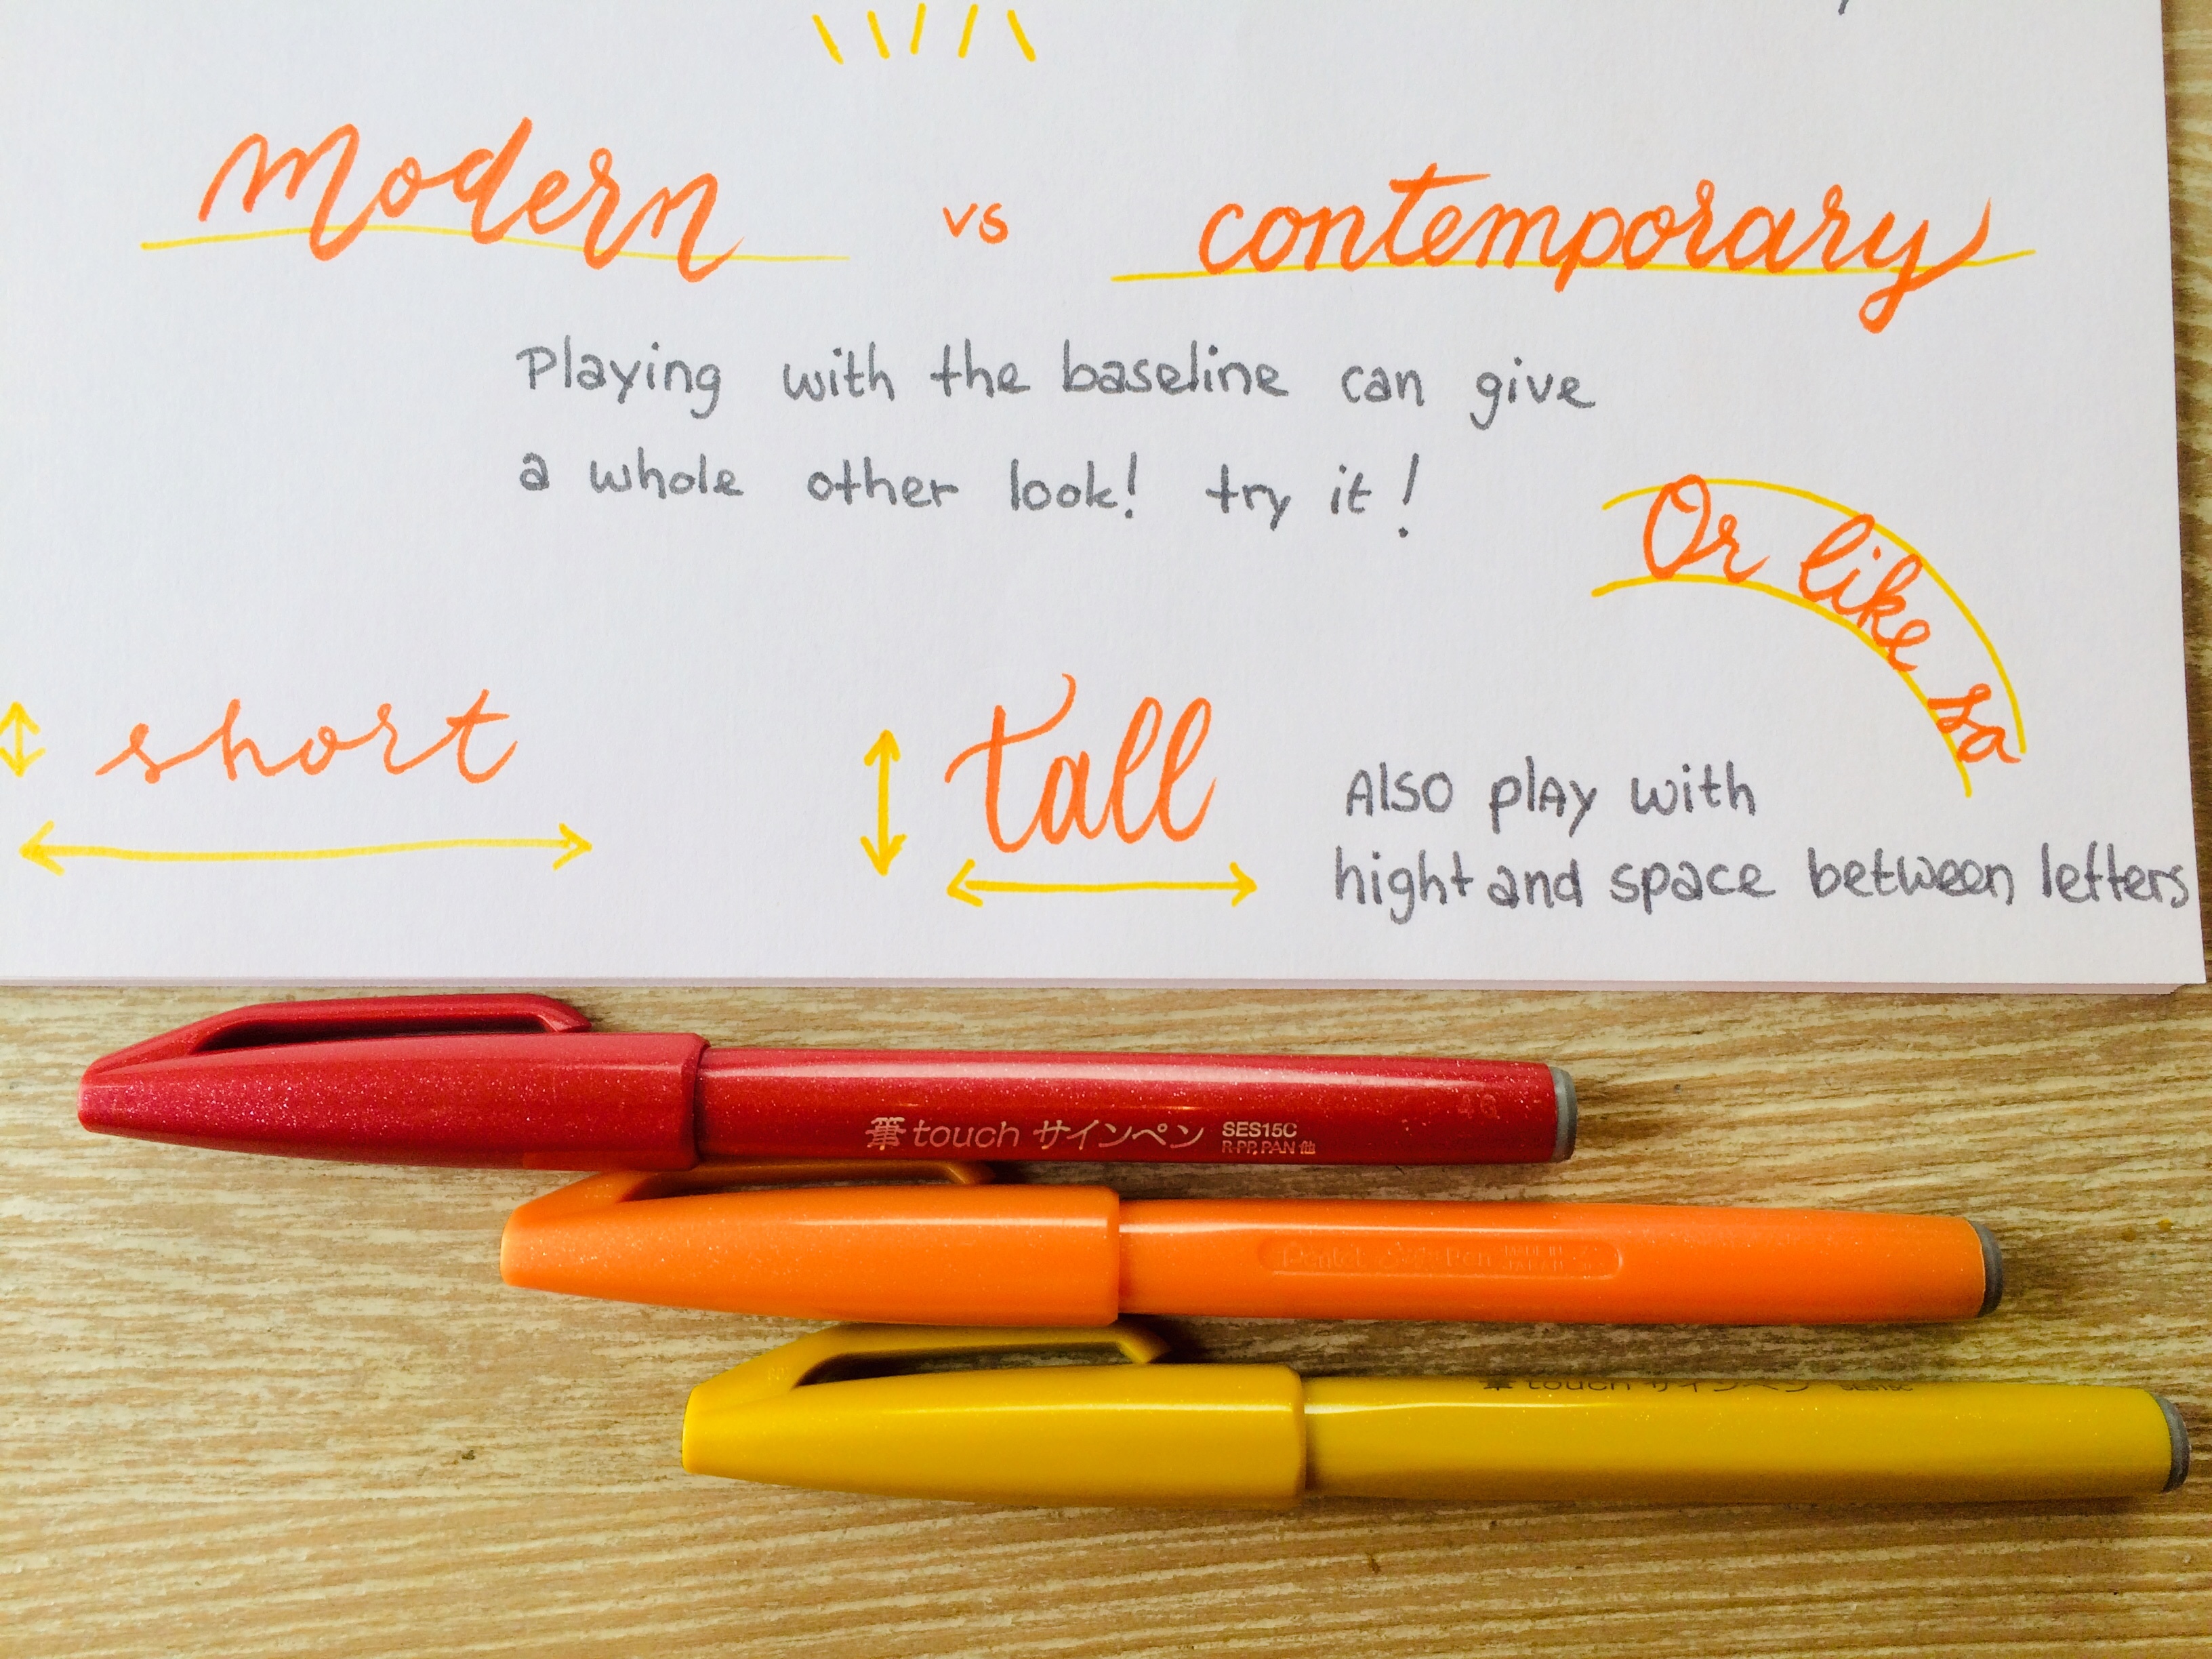 modern vs contemporary
Playing with the baseline can give
a whole other look! try it!
Or like so
short
tall
Also play with
hight and space between letters
筆touch サインペン SES15C
R-PP, PAN 他
Pentel Pen MADE IN
JAPAN
筆touch サインペン SES15C